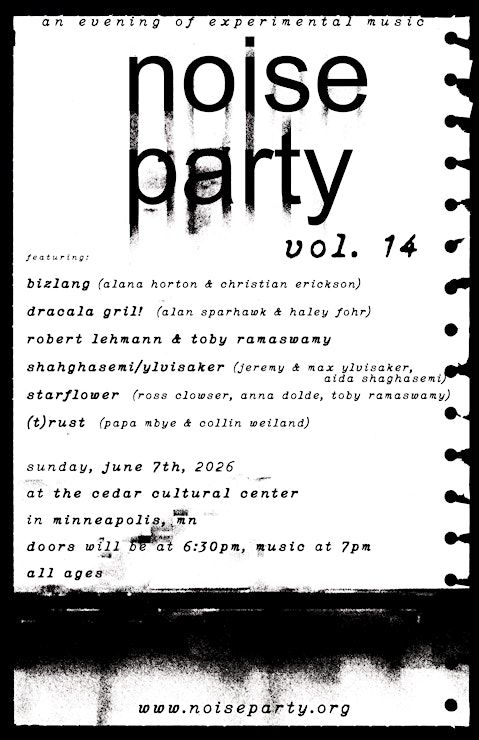 an evening of experimental music
noise
party
vol. 14
featuring:
bizlang (alana horton & christian erickson)
dracala gril! (alan sparhawk & haley fohr)
robert lehmann & toby ramaswamy
shahghasemi/ylvisaker (jeremy & max ylvisaker,
aida shaghasemi)
starflower (ross clowser, anna dolde, toby ramaswamy)
(t)rust (papa mbye & collin weiland)
sunday, june 7th, 2026
at the cedar cultural center
in minneapolis, mn
doors will be at 6:30pm, music at 7pm
all ages
www.noiseparty.org